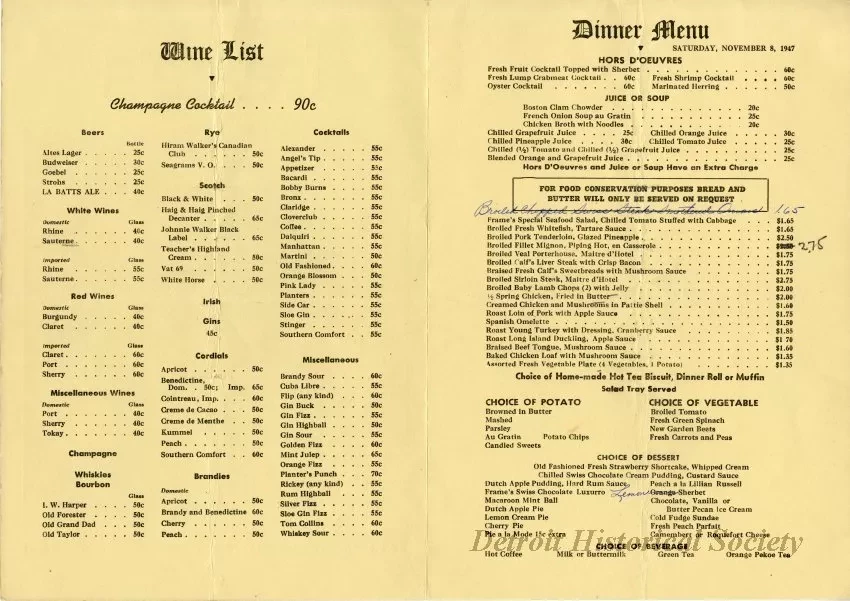 Wine List
Champagne Cocktail . . . . 90c
Beers
Bottle
Altes Lager . . . . . 25c
Budweiser . . . . . 30c
Goebel . . . . . 25c
Strohs . . . . . 25c
LA BATTS ALE . . 40c
White Wines
Domestic Glass
Rhine . . . . . 40c
Sauterne . . . . . 40c
Imported Glass
Rhine . . . . . 55c
Sauterne . . . . . 55c
Red Wines
Domestic Glass
Burgundy . . . . . 40c
Claret . . . . . 40c
Imported Glass
Claret . . . . . 60c
Port . . . . . 60c
Sherry . . . . . 60c
Miscellaneous Wines
Domestic Glass
Port . . . . . 40c
Sherry . . . . . 40c
Tokay . . . . . 40c
Champagne
Whiskies
Bourbon
Glass
I. W. Harper . . . . 50c
Old Forester . . . . 50c
Old Grand Dad . . . 50c
Old Taylor . . . . 50c
Rye
Hiram Walker's Canadian
Club . . . . . 50c
Seagrams V. O. . . . 50c
Scotch
Black & White . . . 50c
Haig & Haig Pinched
Decanter . . . . 65c
Johnnie Walker Black
Label . . . . . 65c
Teacher's Highland
Cream . . . . . 50c
Vat 69 . . . . . 50c
White Horse . . . . 50c
Irish
Gins
45c
Cordials
Apricot . . . . . 50c
Benedictine,
Dom. . . 50c; Imp. 65c
Cointreau, Imp. . . . 60c
Creme de Cacao . . . 50c
Creme de Menthe . . 50c
Kummel . . . . . 50c
Peach . . . . . 50c
Southern Comfort . . 60c
Brandies
Domestic
Apricot . . . . . 50c
Brandy and Benedictine 60c
Cherry . . . . . 50c
Peach . . . . . 50c
Cocktails
Alexander . . . . . 55c
Angel's Tip . . . . . 55c
Appetizer . . . . . 55c
Bacardi . . . . . 60c
Bobby Burns . . . . 55c
Bronx . . . . . 55c
Claridge . . . . . 55c
Cloverclub . . . . . 55c
Coffee . . . . . 55c
Daiquiri . . . . . 55c
Manhattan . . . . . 55c
Martini . . . . . 50c
Old Fashioned . . . . 60c
Orange Blossom . . . 50c
Pink Lady . . . . . 55c
Planters . . . . . 55c
Side Car . . . . . 55c
Sloe Gin . . . . . 55c
Stinger . . . . . 55c
Southern Comfort . . 55c
Miscellaneous
Brandy Sour . . . . 60c
Cuba Libre . . . . . 55c
Flip (any kind) . . . 60c
Gin Buck . . . . . 50c
Gin Fizz . . . . . 55c
Gin Highball . . . . 50c
Gin Sour . . . . . 55c
Golden Fizz . . . . 60c
Mint Julep . . . . . 65c
Orange Fizz . . . . 55c
Planter's Punch . . . 70c
Rickey (any kind) . . 55c
Rum Highball . . . 55c
Silver Fizz . . . . . 55c
Sloe Gin Fizz . . . . 55c
Tom Collins . . . . 60c
Whiskey Sour . . . . 60c
Dinner Menu
SATURDAY, NOVEMBER 8, 1947
HORS D'OEUVRES
Fresh Fruit Cocktail Topped with Sherbet . . . . . 60c
Fresh Lump Crabmeat Cocktail . . 60c Fresh Shrimp Cocktail . . . . 60c
Oyster Cocktail . . . . . 60c Marinated Herring . . . . . 50c
JUICE OR SOUP
Boston Clam Chowder . . . . . 20c
French Onion Soup au Gratin . . . . . 25c
Chicken Broth with Noodles . . . . . 20c
Chilled Grapefruit Juice . . . . 25c Chilled Orange Juice . . . . 30c
Chilled Pineapple Juice . . . . 30c Chilled Tomato Juice . . . . 25c
Chilled (½) Tomato and Chilled (½) Grapefruit Juice . . . . . 25c
Blended Orange and Grapefruit Juice . . . . . 25c
Hors D'Oeuvres and Juice or Soup Have an Extra Charge
FOR FOOD CONSERVATION PURPOSES BREAD AND
BUTTER WILL ONLY BE SERVED ON REQUEST
Broiled Chopped Swiss Steak 165
Frame's Special Seafood Salad, Chilled Tomato Stuffed with Cabbage . . $1.65
Broiled Fresh Whitefish, Tartare Sauce . . . . . $1.65
Broiled Pork Tenderloin, Glazed Pineapple . . . . . $2.50
Broiled Fillet Mignon, Piping Hot, en Casserole . . . . . 2.75
Broiled Veal Porterhouse, Maitre d'Hotel . . . . . $1.75
Broiled Calf's Liver Steak with Crisp Bacon . . . . . $1.75
Braised Fresh Calf's Sweetbreads with Mushroom Sauce . . . . . $1.75
Broiled Sirloin Steak, Maitre d'Hotel . . . . . $2.75
Broiled Baby Lamb Chops (2) with Jelly . . . . . $2.00
½ Spring Chicken, Fried in Butter . . . . . $2.00
Creamed Chicken and Mushrooms in Pattie Shell . . . . . $1.60
Roast Loin of Pork with Apple Sauce . . . . . $1.75
Spanish Omelette . . . . . $1.50
Roast Young Turkey with Dressing, Cranberry Sauce . . . . . $1.85
Roast Long Island Duckling, Apple Sauce . . . . . $1 70
Braised Beef Tongue, Mushroom Sauce . . . . . $1.60
Baked Chicken Loaf with Mushroom Sauce . . . . . $1.35
Assorted Fresh Vegetable Plate (4 Vegetables, 1 Potato) . . . . . $1.35
Choice of Home-made Hot Tea Biscuit, Dinner Roll or Muffin
Salad Tray Served
CHOICE OF POTATO
Browned in Butter
Mashed
Parsley
Au Gratin Potato Chips
Candied Sweets
CHOICE OF VEGETABLE
Broiled Tomato
Fresh Green Spinach
New Garden Beats
Fresh Carrots and Peas
CHOICE OF DESSERT
Old Fashioned Fresh Strawberry Shortcake, Whipped Cream
Chilled Swiss Chocolate Cream Pudding, Custard Sauce
Dutch Apple Pudding, Hard Rum Sauce Peach a la Lillian Russell
Frame's Swiss Chocolate Luxurro Lemon Orange Sherbet
Macaroon Mint Ball Chocolate, Vanilla or
Dutch Apple Pie Butter Pecan Ice Cream
Lemon Cream Pie Cold Fudge Sundae
Cherry Pie Fresh Peach Parfait
Pie a la Mode 15c extra Camembert or Roquefort Cheese
Detroit Historical Society
CHOICE OF BEVERAGE
Hot Coffee Milk or Buttermilk Green Tea Orange Pekoe Tea